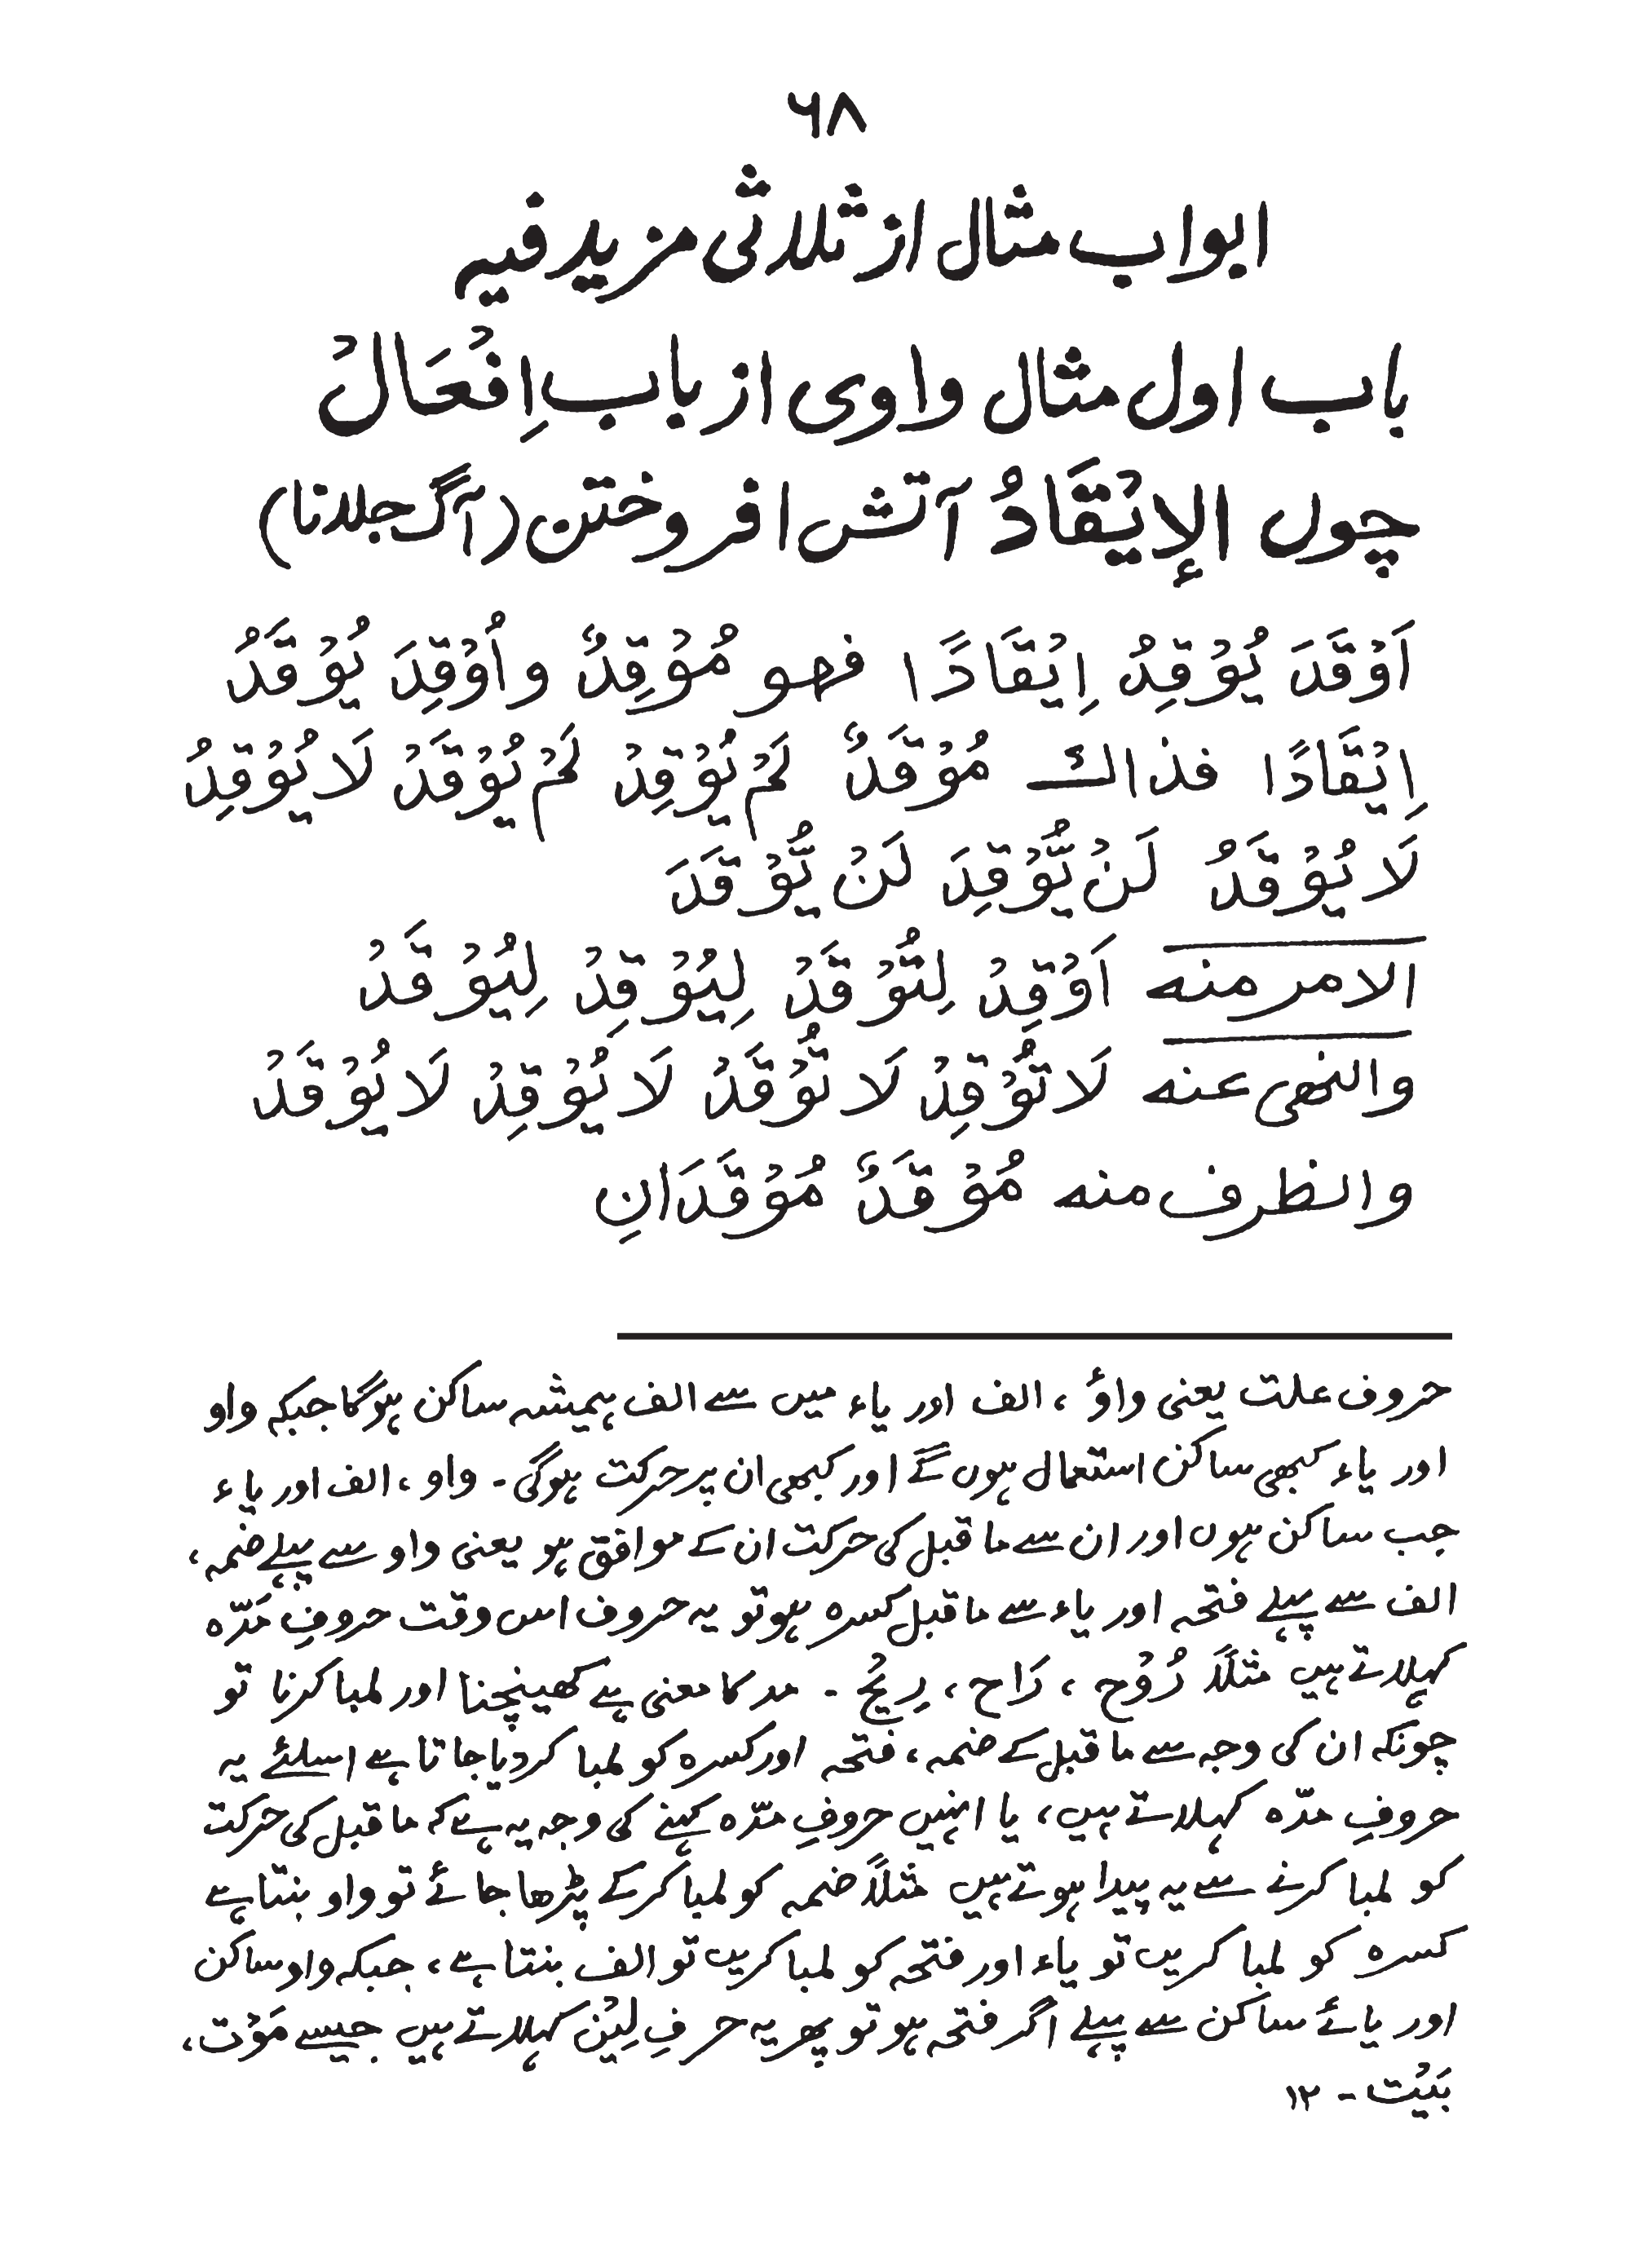 ٦٨
ابواب مثال از ثلاثی مزید فیہ
باب اول مثال واوی از باب اِفْعَالْ
چوں الإیْقَادُ آتش افروختن (آگ جلانا)
اَوْقَدَ یُوْقِدُ اِیْقَادًا فهو مُوْقِدٌ واُوْقِدَ یُوْقَدُ
اِیْقَادًا فذاك مُوْقَدٌ لَمْ یُوْقِدْ لَمْ یُوْقَدْ لَا یُوْقِدُ
لَا یُوْقَدُ لَنْ یُّوْقِدَ لَنْ یُّوْقَدَ
الامر منه اَوْقِدْ لِتُوْقَدْ لِیُوْقِدْ لِیُوْقَدْ
والنهی عنه لَا تُوْقِدْ لَا تُوْقَدْ لَا یُوْقِدْ لَا یُوْقَدْ
والظرف منه مُوْقَدٌ مُوْقَدَانِ
حروف علت یعنی واؤ ، الف اور یاء میں سے الف ہمیشہ ساکن ہوگا جبکہ واو
اور یاء کبھی ساکن استعمال ہوں گے اور کبھی ان پر حرکت ہوگی ۔ واو ، الف اور یاء
جب ساکن ہوں اور ان سے ما قبل کی حرکت ان کے موافق ہو یعنی واو سے پہلے ضمہ ،
الف سے پہلے فتحہ اور یاء سے ماقبل کسرہ ہو تو یہ حروف اس وقت حروفِ مَدّہ
کہلاتے ہیں مثلاً رُوْح ، رَاح ، رِیْحْ ۔ مد کا معنی ہے کھینچنا اور لمبا کرنا تو
چونکہ ان کی وجہ سے ما قبل کے ضمہ ، فتحہ اور کسرہ کو لمبا کر دیا جاتا ہے اسلئے یہ
حروفِ مدّہ کہلاتے ہیں ، یا انہیں حروفِ مدّہ کہنے کی وجہ یہ ہے کہ ما قبل کی حرکت
کو لمبا کرنے سے یہ پیدا ہوتے ہیں مثلاً ضمہ کو لمبا کر کے پڑھا جائے تو واو بنتا ہے
کسرہ کو لمبا کریں تو یاء اور فتحہ کو لمبا کریں تو الف بنتا ہے ، جبکہ واو ساکن
اور یائے ساکن سے پہلے اگر فتحہ ہو تو پھر یہ حرفِ لِیْن کہلاتے ہیں جیسے مَوْت ،
بَیْت ۔ ۱۲